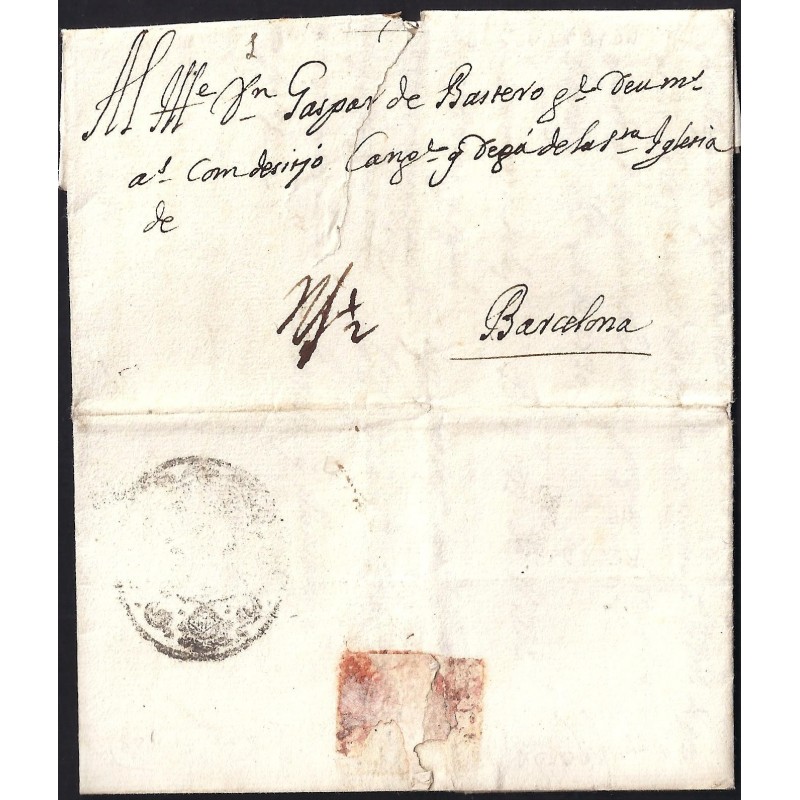 1
Al Ille Dn Gaspar de Bastero ge Deu mr
as com desitjo Cange y Degá de la Sta Iglesia
de
Barcelona